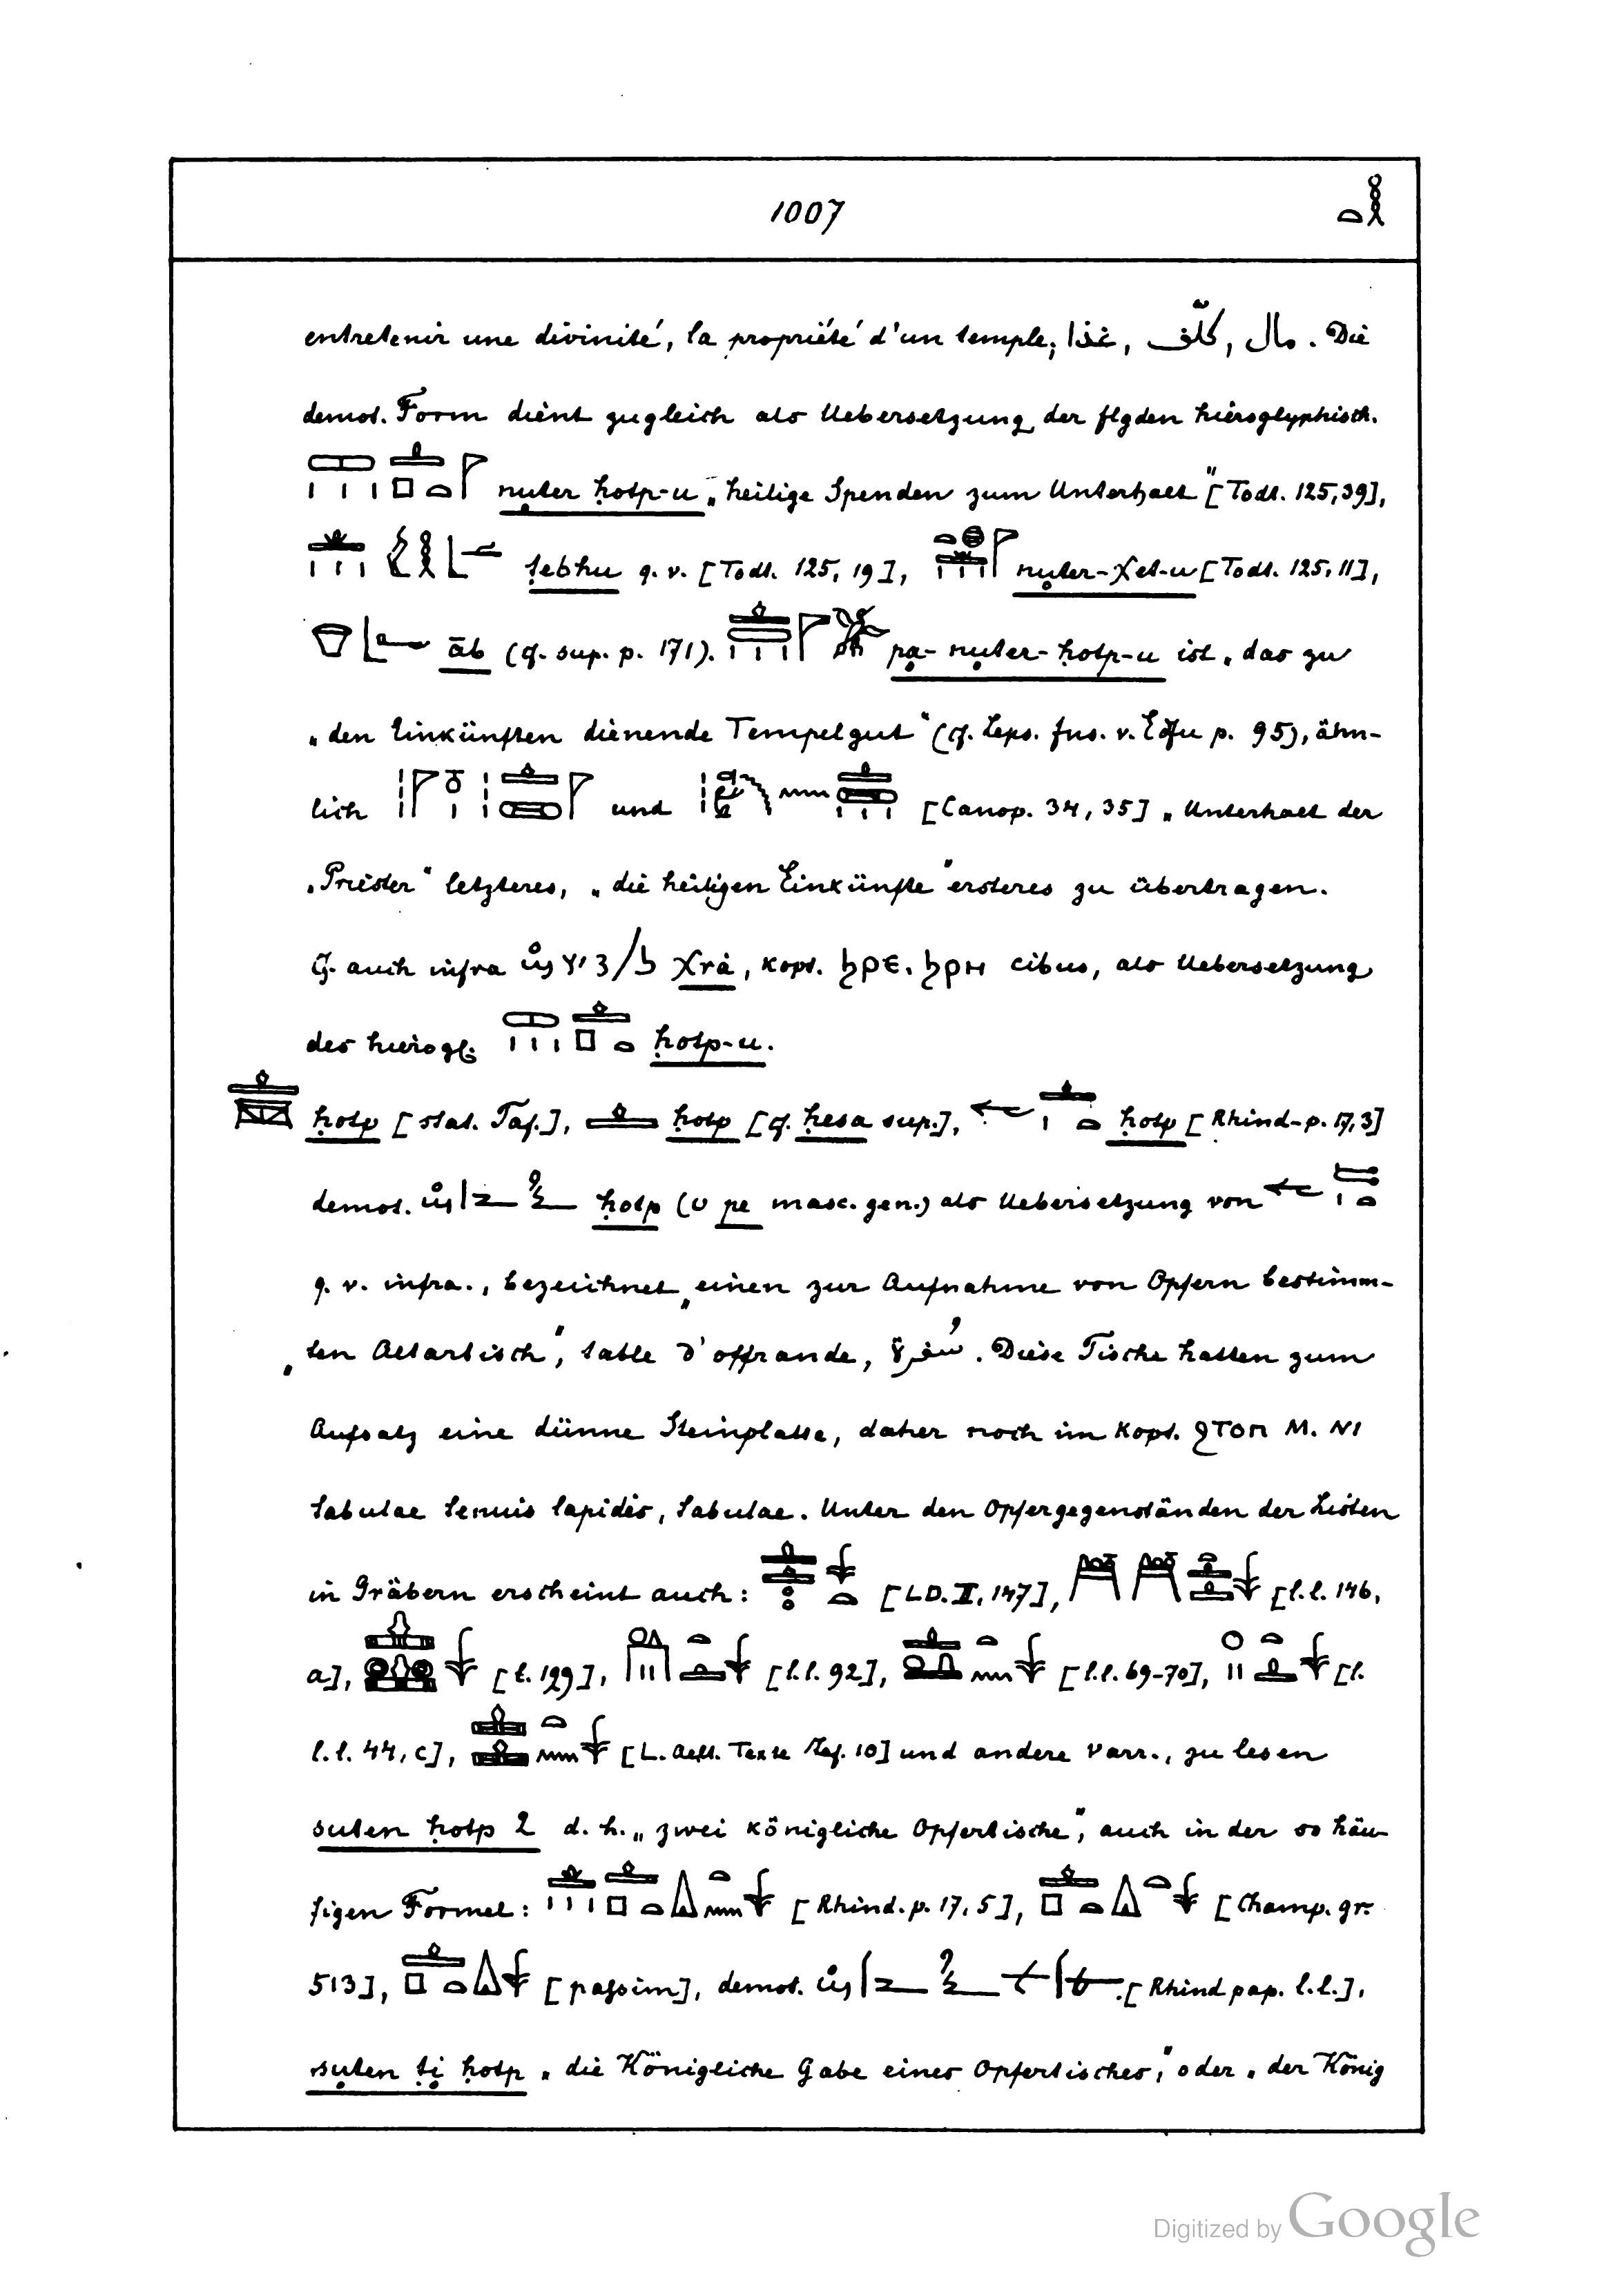 1007
entretenir une divinité, la propriété d'un temple; غذا, كلّف, مال. Die
demot. Form dient zugleich als Uebersetzung der flgden hieroglyphisch.
nuter ḥotp-u „heilige Spenden zum Unterhalt" [Todt. 125,39],
ṭebḥu q. v. [Todt. 125, 19], nuter-χet-u [Todt. 125, 11],
āb (cf. sup. p. 171). pa-nuter-ḥotp-u ist „das zu
„den Einkünften dienende Tempelgut" (cf. Leps. Ins. v. Edfu p. 95), ähn-
lich und [Canop. 34, 35] „Unterhalt der
„Priester" letzteres, „die heiligen Einkünfte" ersteres zu übertragen.
Cf. auch infra χrȧ, kopt. ϧⲣⲉ. ϧⲣⲏ cibus, als Uebersetzung
des hierogl. ḥotp-u.
ḥotp [stat. Taf.], ḥotp [cf. ḥesa sup.], ḥotp [Rhind-p. 17,3]
demot. ḥotp (υ pe masc. gen.) als Uebersetzung von
q. v. infra., bezeichnet „einen zur Aufnahme von Opfern bestimm-
„ten Altartisch", table d'offrande, سُفرة. Diese Tische hatten zum
Aufsatz eine dünne Steinplatte, daher noch im Kopt. ϩⲧⲟⲡ M. ⲛⲓ
tabulae tenuis lapidis, tabulae. Unter den Opfergegenständen der Listen
in Gräbern erscheint auch: [LD. II, 147], [l.l. 146,
a], [l. 129], [l.l. 92], [l.l. 69-70], [l.
l.l. 44, c], [L. Aelt. Texte Taf. 10] und andere Varr., zu lesen
suten ḥotp 2 d. h. „zwei königliche Opfertische", auch in der so häu-
figen Formel: [Rhind. p. 17, 5], [Champ. gr.
513], [passim], demot. [Rhind pap. l.l.],
suten ṭi ḥotp „die Königliche Gabe eines Opfertisches", oder „der König
Digitized by Google